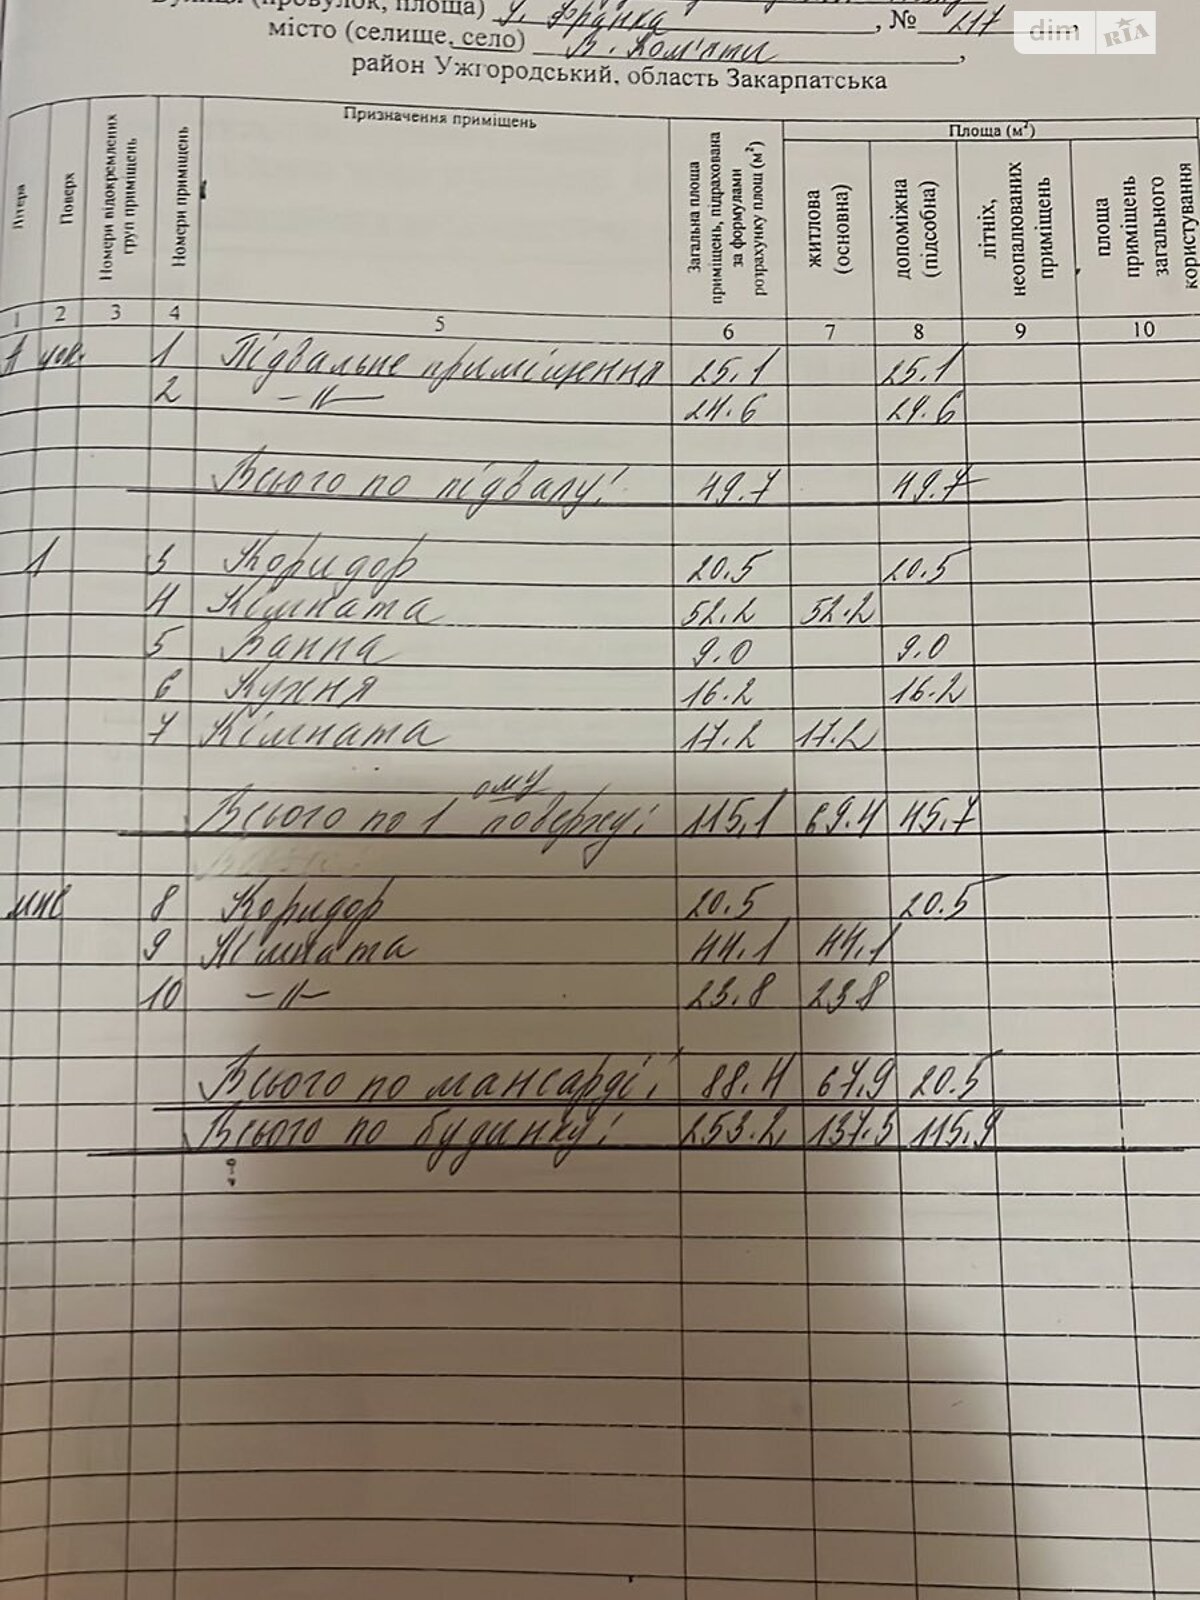 Вулиця (провулок, площа) І. Франка, № 217
dim RIA
місто (селище, село) В. Ком'яти,
район Ужгородський, область Закарпатська
Літера
Поверх
Номери відокремлених груп приміщень
Номери приміщень
Призначення приміщень
Загальна площа приміщень, підрахована за формулами розрахунку площ (м²)
Площа (м²)
житлова (основна)
допоміжна (підсобна)
літніх, неопалюваних приміщень
площа приміщень загального користування
1 2 3 4 5 6 7 8 9 10
А цок. 1 Підвальне приміщення 25.1 25.1
2 -//- 24.6 24.6
Всього по підвалу: 49.7 49.7
1 3 Коридор 20.5 20.5
4 Кімната 52.2 52.2
5 Ванна 9.0 9.0
6 Кухня 16.2 16.2
7 Кімната 17.2 17.2
Всього по 1 ому поверху: 115.1 69.4 45.7
манс 8 Коридор 20.5 20.5
9 Кімната 44.1 44.1
10 -//- 23.8 23.8
Всього по мансарді: 88.4 67.9 20.5
Всього по будинку: 253.2 137.3 115.9